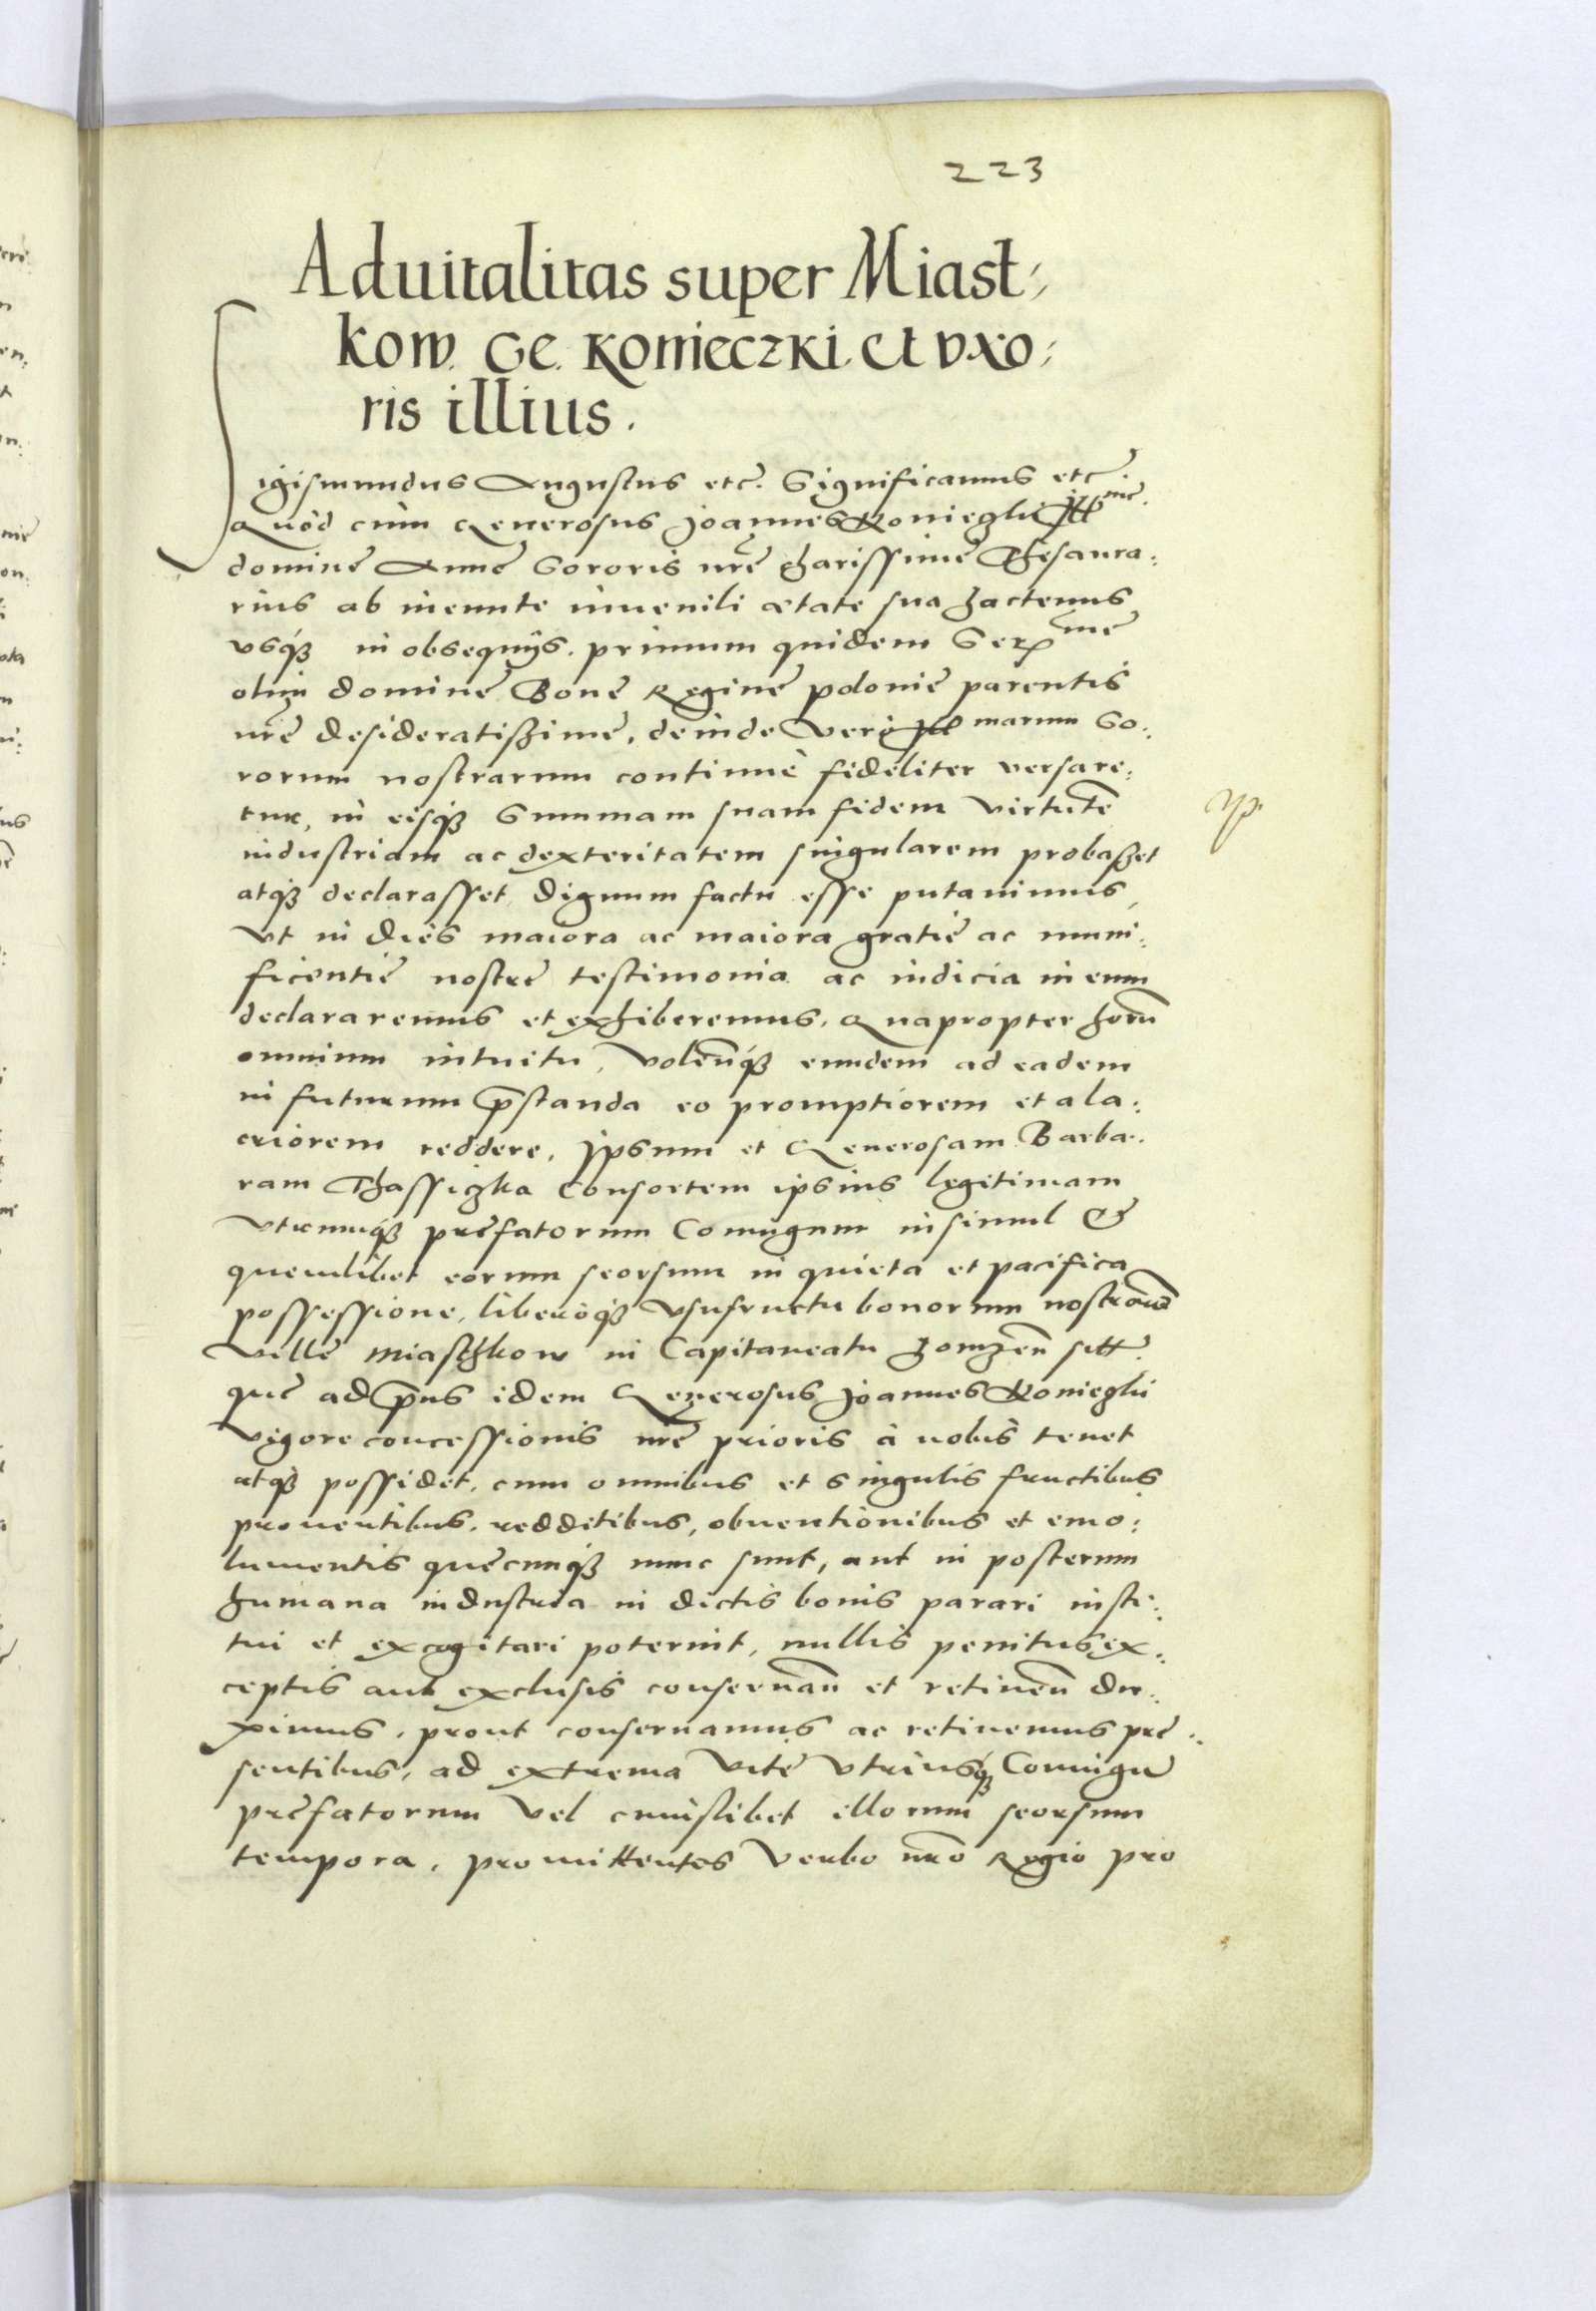 223
Aduitalitas super Miast:
kow. Ge. Konieczki. et vxo:
ris illius.
Sigismundus Augustus etc. Significamus etc.
Quòd cùm Generosus Joannes Konieczki Ill me.
dominę Annę Sororis nrę charissimę Thesaura:
rius ab ineunte iuuenili ætate sua hactenus
vsq́ꝫ in obsequijs. primum quidem Ser mę
olim dominę Bonę Reginę Polonię parentis
nrę desideratißimę, deinde verò Ill marum So:
rorum nostrarum continuè fideliter versare:
tur, in eisq́ꝫ Summam suam fidem virtutẽ
industriam ac dexteritatem singularem probaßet
atq́ꝫ declarasset, dignum factu esse putauimus,
vt in dies maiora ac maiora gratię ac muni:
ficentię nostrę testimonia ac indicia in eum
declararemus et exhiberemus. Quapropter horũ
omnium intuitu, volenq́ꝫ eundem ad eadem
in futurum p̄standa eo promptiorem et ala:
criorem reddere, Ipsum et Generosam Barba:
ram Thassiczka Consortem ipsius legitimam
vtrumq́ꝫ pręfatorum Coniugum insimul &
quemlibet eorum seorsum in quieta et pacifica
possessione, liberòq́ꝫ vsufructu bonorum nostrorũ
villę Miaschkow in Capitaneatu Lomzeñ sitt.
quę ad p̄ns idem Generosus Joannes Konieczki
vigore concessionis nrę prioris à nobis tenet
atq́ꝫ possidet, cum omnibus et singulis fructibus
prouentibus, redditibus, obuentionibus et emo:
lumentis quęcunq́ꝫ nunc sunt, aut in posterum
humana industria in dictis bonis parari insti:
tui et excogitari poterint, nullis penitus ex:
ceptis aut exclusis conseruañ et retineñ du:
ximus, prout conseruamus ac retinemus prę:
sentibus, ad extrema vitę vtriusq́ꝫ Coniugũ
pręfatorum vel cuiuslibet illorum seorsum
tempora, promittentes verbo nro Regio pro